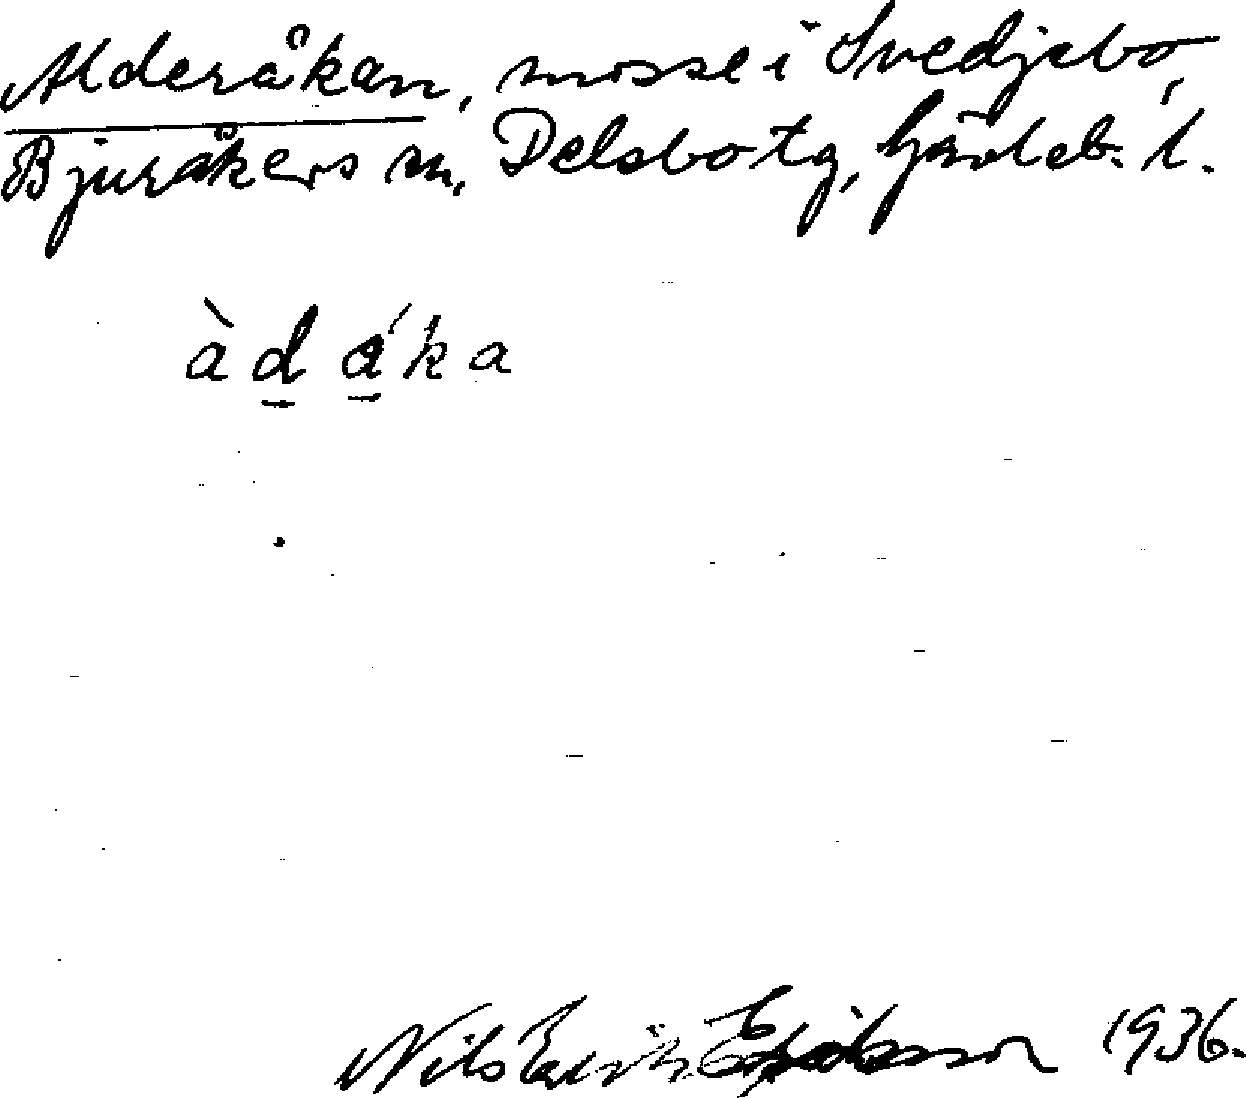 Alderåkan, mosse i Svedjebo,
Bjuråkers sn, Delsbo tg, Gävleb. l.
àd̲á̲ka
Nils Erik 1936.